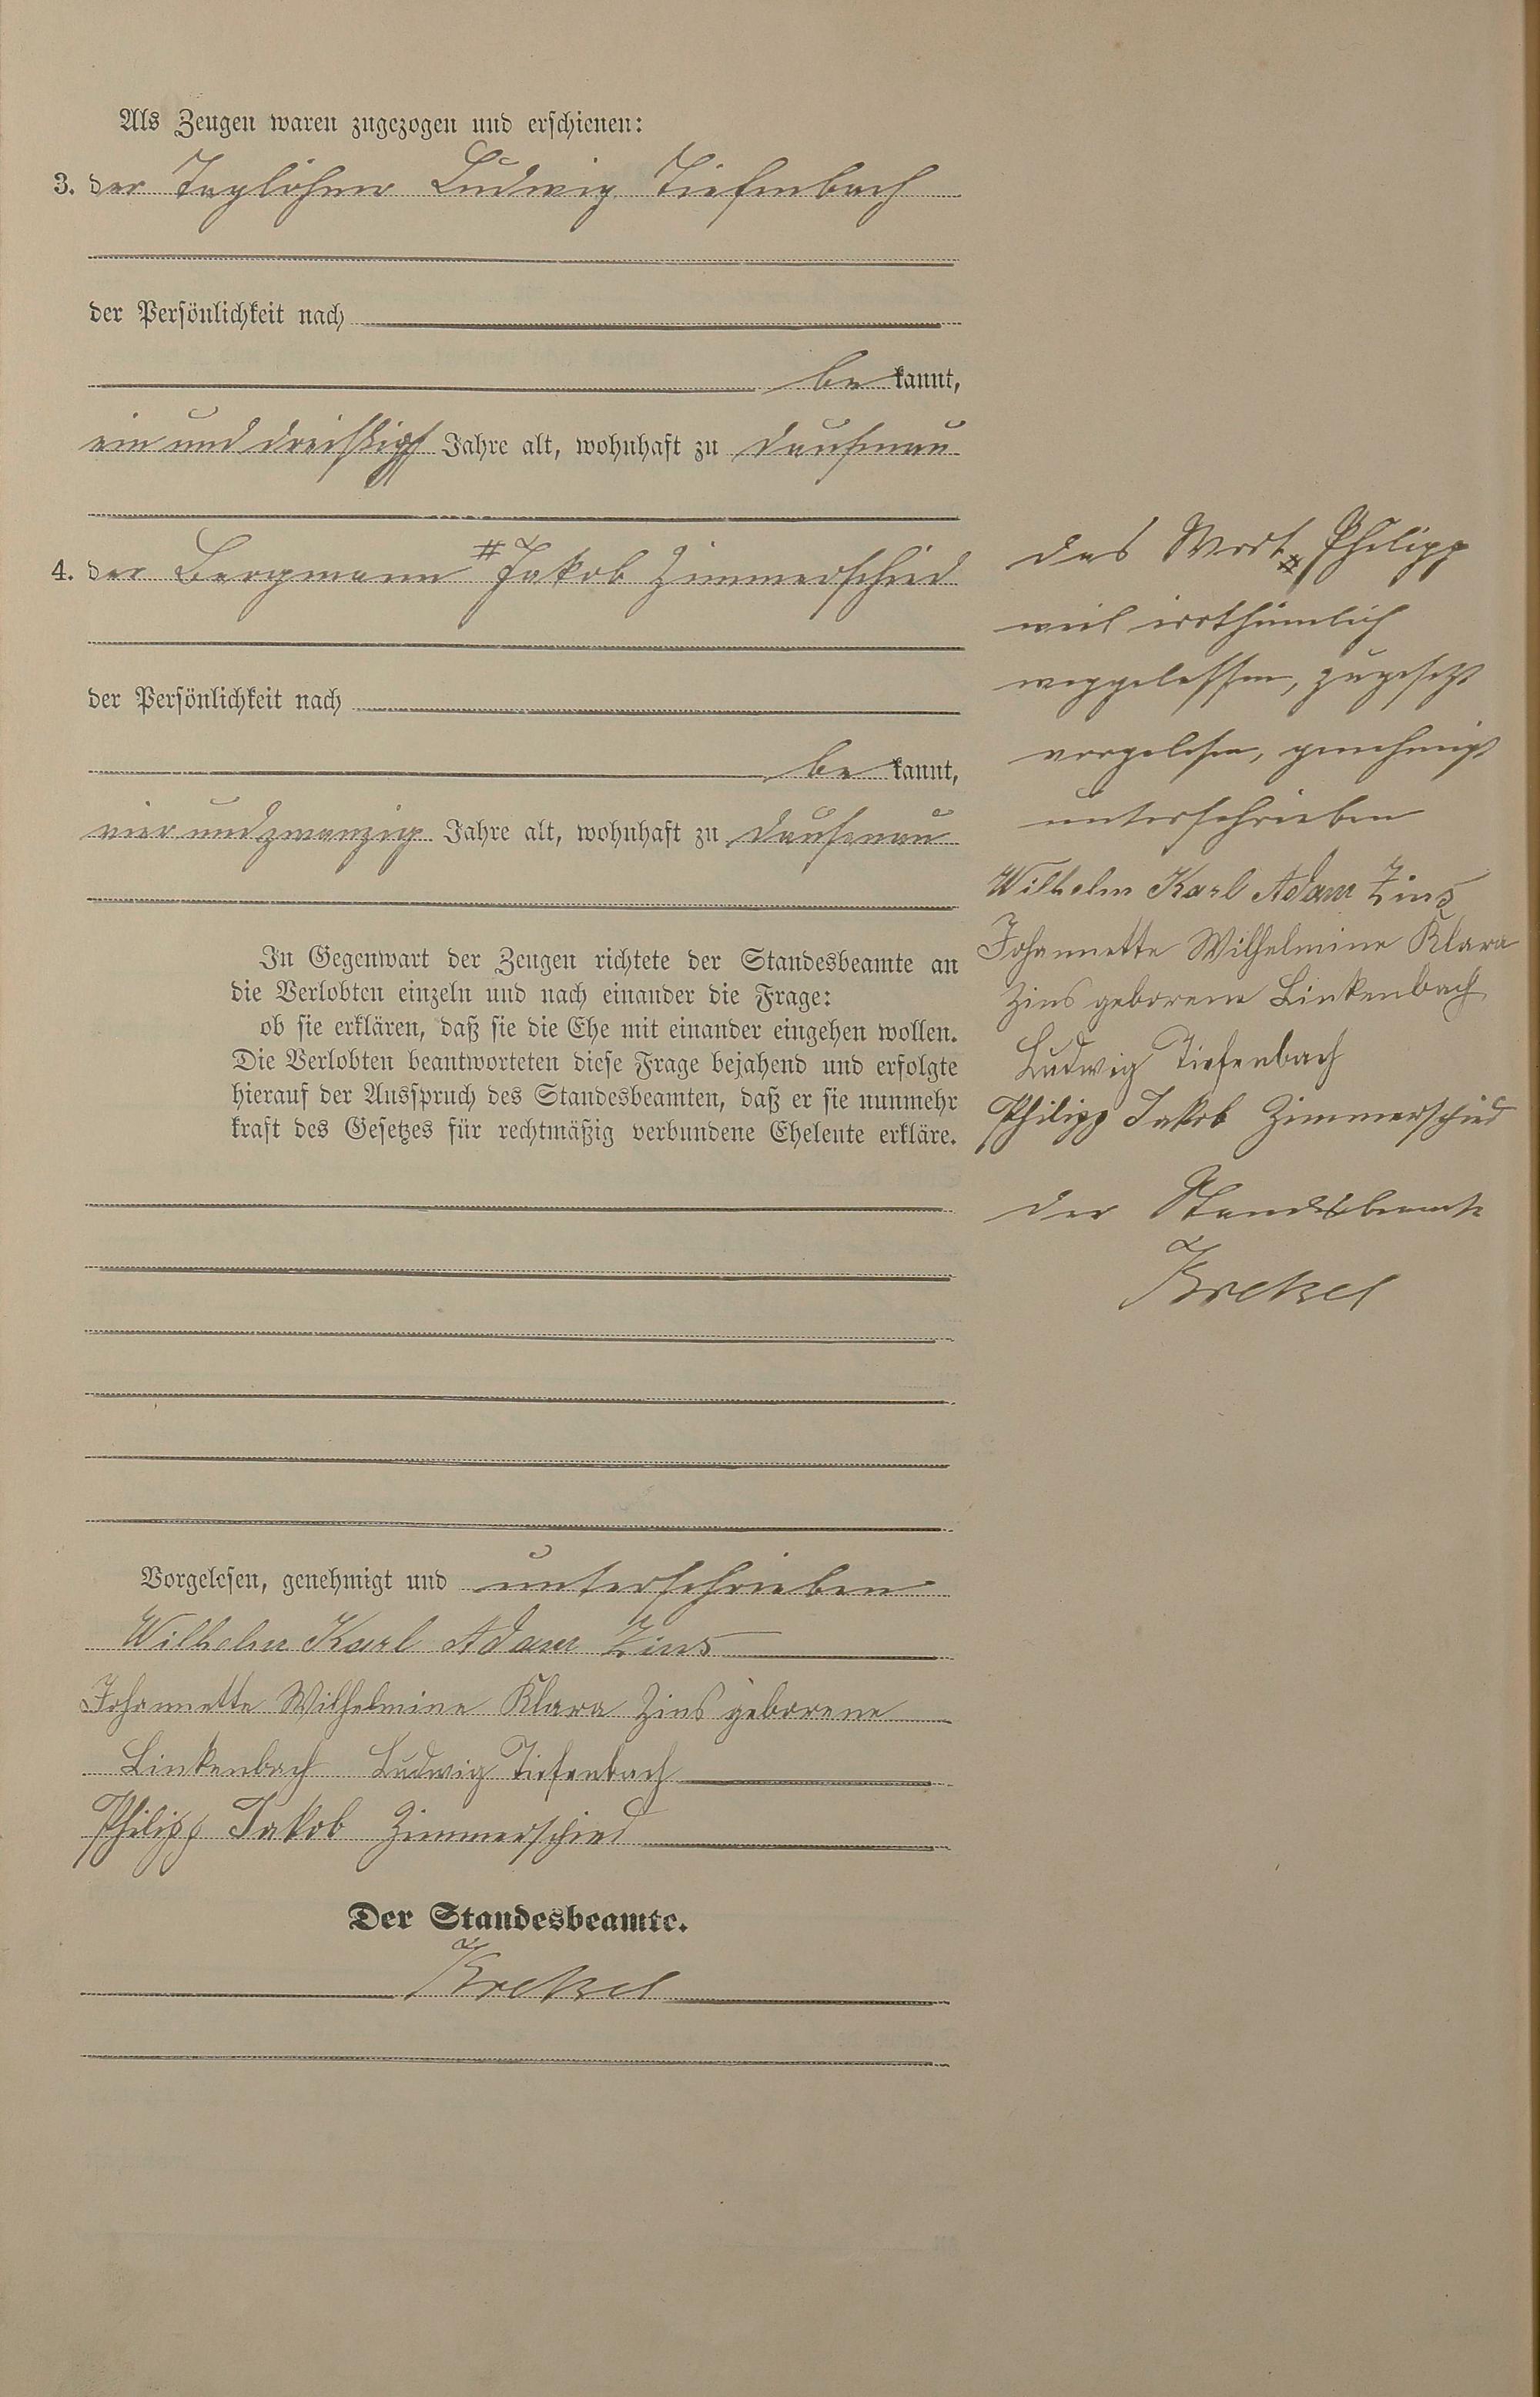 Als Zeugen waren zugezogen und erschienen:
3. der Taglöhner Ludwig Tiefenbach
der Persönlichkeit nach
be kannt,
ein und dreißig Jahre alt, wohnhaft zu Dausenau
4. der Bergmann # Jakob Zimmerschied
der Persönlichkeit nach
be kannt,
vier und zwanzig Jahre alt, wohnhaft zu Dausenau
In Gegenwart der Zeugen richtete der Standesbeamte an
die Verlobten einzeln und nach einander die Frage:
ob sie erklären, daß sie die Ehe mit einander eingehen wollen.
Die Verlobten beantworteten diese Frage bejahend und erfolgte
hierauf der Ausspruch des Standesbeamten, daß er sie nunmehr
kraft des Gesetzes für rechtmäßig verbundene Eheleute erkläre.
Vorgelesen, genehmigt und unterschrieben
Wilhelm Karl Adam Zins
Johannette Wilhelmine Klara Zins geborene
Linkenbach Ludwig Tiefenbach
Philipp Jakob Zimmerschied
Der Standesbeamte.
Krekel
das Wort # Philipp
weil irrthümlich
weggelassen, zugesetzt
vorgelesen, genehmigt
unterschrieben
Wilhelm Karl Adam Zins
Johannette Wilhelmine Klara
Zins geborene Linkenbach
Ludwig Tiefenbach
Philipp Jakob Zimmerschied
der Standesbeamte
Krekel